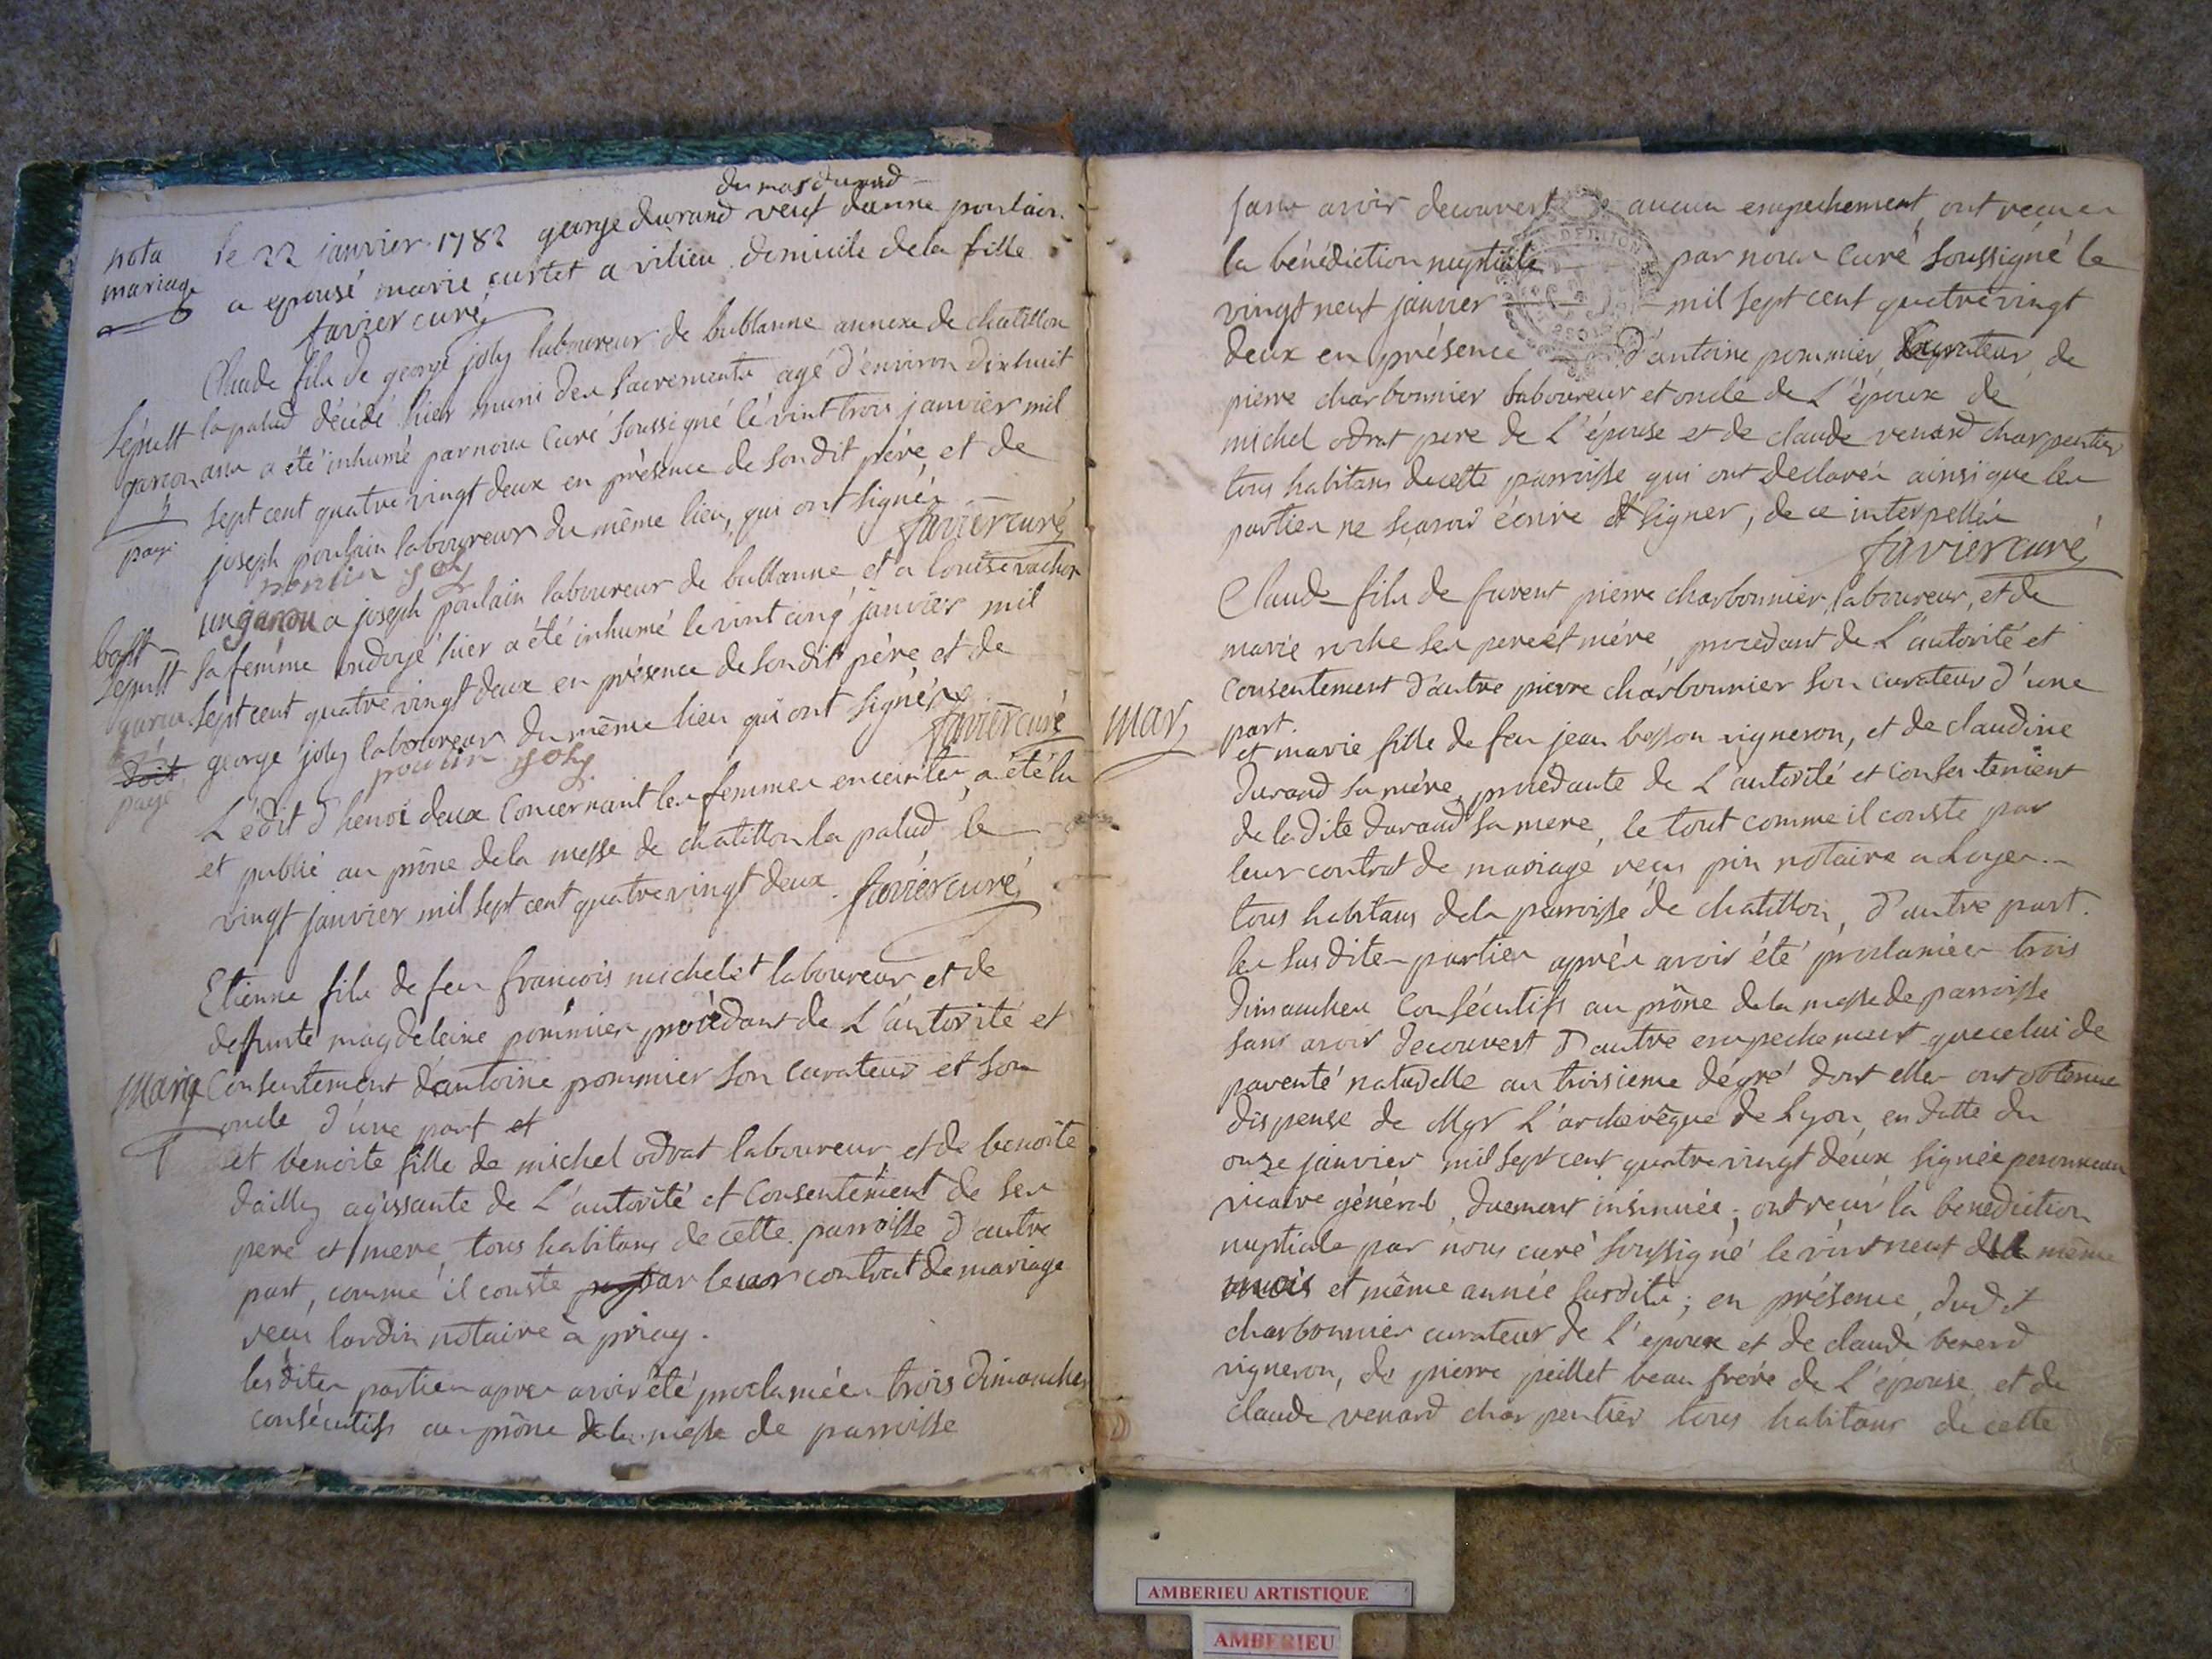 du mas durand
nota le 22 janvier 1782 george durand veuf danne poulain
mariage a epousé marie curtet a vilieu domicile de la fille
favier curé
Claude fils de george joly laboureur de bublanne annexe de chatillon
sépult la palud décédé hier muni des sacrements agé d'environ dixhuit
garcon ans a été inhumé par nous Curé soussigné le vint trois janvier mil
sept cent quatre vingt deux en présence de son dit père et de
payé joseph poulain laboureur du même lieu, qui ont signés
favier curé
un garcon a joseph poulain laboureur de bublanne et a louise vachon
bapt
sepult sa femme ondoyé hier a été inhumé le vint cinq janvier mil
garcon sept cent quatre vingt deux en présence de son dit père et de
george joly laboureur du même lieu qui ont signés
favier curé
doit
payé
joly
L'édit d'henri deux Concernant les femmes enceintes, a été lu
et publié au prône de la messe de chatillon la palud le
vingt janvier mil sept cent quatre vingt deux. favier curé
Etienne fils de feu francois michelet laboureur, et de
deffunte magdeleine pommier procédant de L'autorité et
Mariage Consentement d'antoine pommier son curateur et son
oncle d'une part et
et benoite fille de michel odrat laboureur et de benoite
dailly agissante de L'autorité et Consentement de ses
pere et mere, tous habitans de cette parroisse d'autre
part, comme il conste par leur contrat de mariage
recu lardin notaire à priay.
les dites parties apres avoir été proclamées trois dimanches
consécutifs au prône de la messe de parroisse
sans avoir decouvert aucun empechement, ont recues
la bénédiction nuptiale par nous Curé soussigné le
vingt neuf janvier mil sept cent quatre vingt
deux en présence d'antoine pommier, curateur, de
pierre charbonnier laboureur et oncle de L'époux de
michel odrat pere de L'épouse et de claude venard charpentier
tous habitans de cette parroisse qui ont declarés ainsi que les
parties ne sçavoir écrire et signer, de ce interpellés
favier curé
Claude fils de furent pierre charbonnier, laboureur, et de
marie roche ses pere et mére, procedant de L'autorité et
Consentement d'autre pierre charbonnier son curateur d'une
Mar part.
et marie fille de feu jean besson vigneron, et de claudine
durand sa mére, procédante de L'autorité et Consentement
de la dite durand sa mere, le tout comme il conste par
leur contrat de mariage recu pin notaire a Loyes
tous habitans de la parroisse de chatillon, d'autre part.
les sus dites parties aprés avoir été proclamées trois
dimanches Consécutifs au prône de la messe de parroisse
sans avoir decouvert d'autre empechement que celui de
parenté naturelle au troisieme dégré dont elles ont obtenue
dispense de Mgr L'archevêque de Lyon, en datte du
onze janvier mil sept cent quatre vingt deux signée
vicaire général, duement insinuée; ont recu la benediction
nuptiale par nous curé soussigné le vint neuf du même
mois et même année susdite; en présence, dudit
charbonnier curateur de L'époux et de claude bererd
vigneron, de pierre peillet beau frére de L'épouse, et de
claude venard charpentier tous habitans de cette
AMBERIEU ARTISTIQUE
AMBERIEU